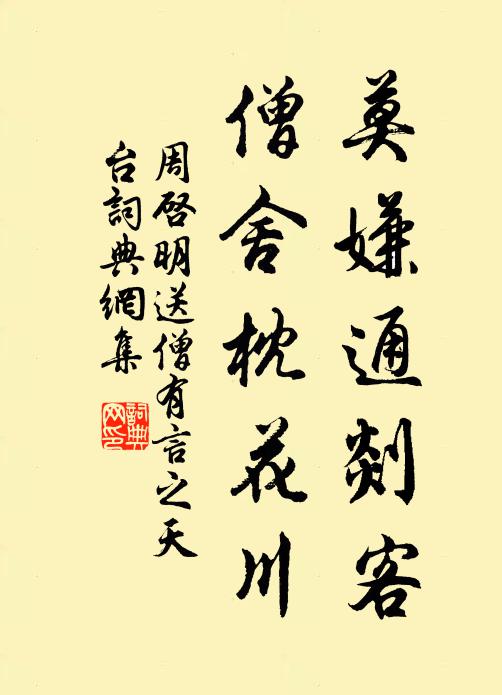 莫嫌通剡客
僧舍枕花川
周啓明送僧有言之天
台詞典網集
詞典网印